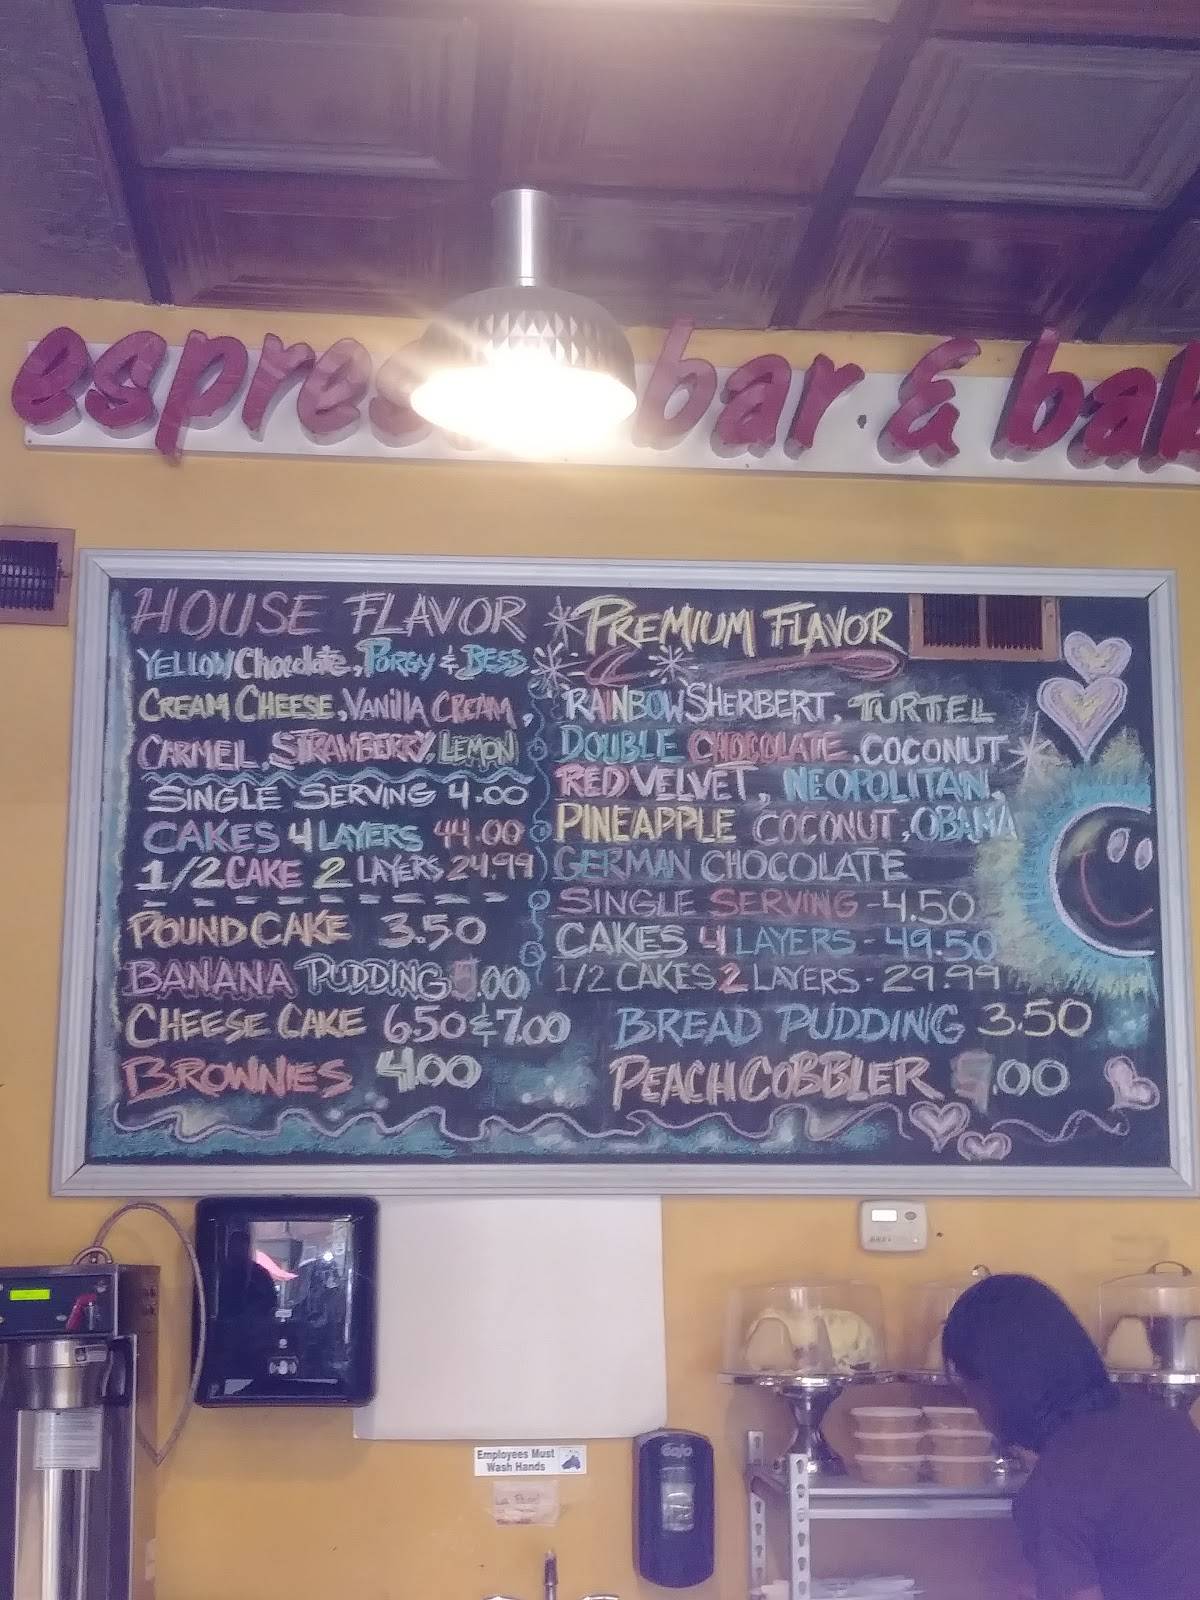 espres bar & bak
HOUSE FLAVOR
YELLOW Chocolate, PORGY & BESS
CREAM CHEESE, VANIllA CREAM,
CARMEL, STRAWBERRY, LEMON
SINGLE SERVING 4.00
CAKES 4 LAYERS 44.00
1/2 CAKE 2 LAYERS 24.99
POUND CAKE 3.50
BANANA PUDDING .00
CHEESE CAKE 6.50 & 7.00
BROWNIES 4.00
PREMIUM FLAVOR
RAINBOW SHERBERT, TURTEL
DOUBLE CHOCOLATE, COCONUT
RED VELVET, NEOPOLITAN,
PINEAPPLE COCONUT, OBAMA
GERMAN CHOCOLATE
SINGLE SERVING - 4.50
CAKES 4 LAYERS - 49.50
1/2 CAKES 2 LAYERS - 29.99
BREAD PUDDING 3.50
PEACH COBBLER .00
Employees Must
Wash Hands
GOJO